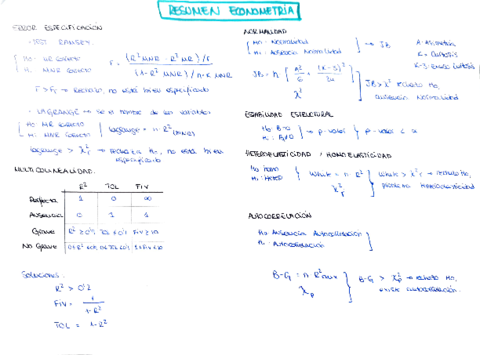 RESUMEN ECONOMETRÍA
ERROR ESPECIFICACIÓN
- TEST RAMSEY
H0: MR CORRECTO
H1: MNR CORRECTO
F = (R² MNR - R² MR) / r
(1 - R² MNR) / n-k MNR
F > Fr → Rechazo, no está bien especificado
- LAGRANGE →
H0 MR CORRECTO
H1 MNR CORRECTO
lagrange = n R²
lagrange > χ²r → rechazo H0, no está bien especificado
MULTICOLINEALIDAD
R² TOL FIV
Perfecta 1 0 ∞
Ausencia 0 1 1
Grave
No Grave
Soluciones
R² > 0'9
FIV = 1
1-R²
TOL = 1-R²
NORMALIDAD
H0 = Normalidad
H1 = Ausencia Normalidad
→ JB
A = Asimetría
K = Curtosis
K-3 = Exceso Curtosis
JB = n [ A²/6 + (K-3)²/24 ]
JB > χ² rechazo H0,
ausencia Normalidad
χ²
ESTABILIDAD ESTRUCTURAL
H0 B=0
H1 B≠0
→ p-valor
p-valor < α
HETEROELASTICIDAD / HOMOELASTICIDAD
H0 homo
H1: Hetero
White = n R²
χ²r
White > χ²r → rechazo H0,
presenta Heteroelasticidad
AUTOCORRELACIÓN
H0 = Ausencia Autocorrelación
H1: Autocorrelación
B-G = n R²
χp
B-G > χ²p → rechazo H0,
existe autocorrelación.